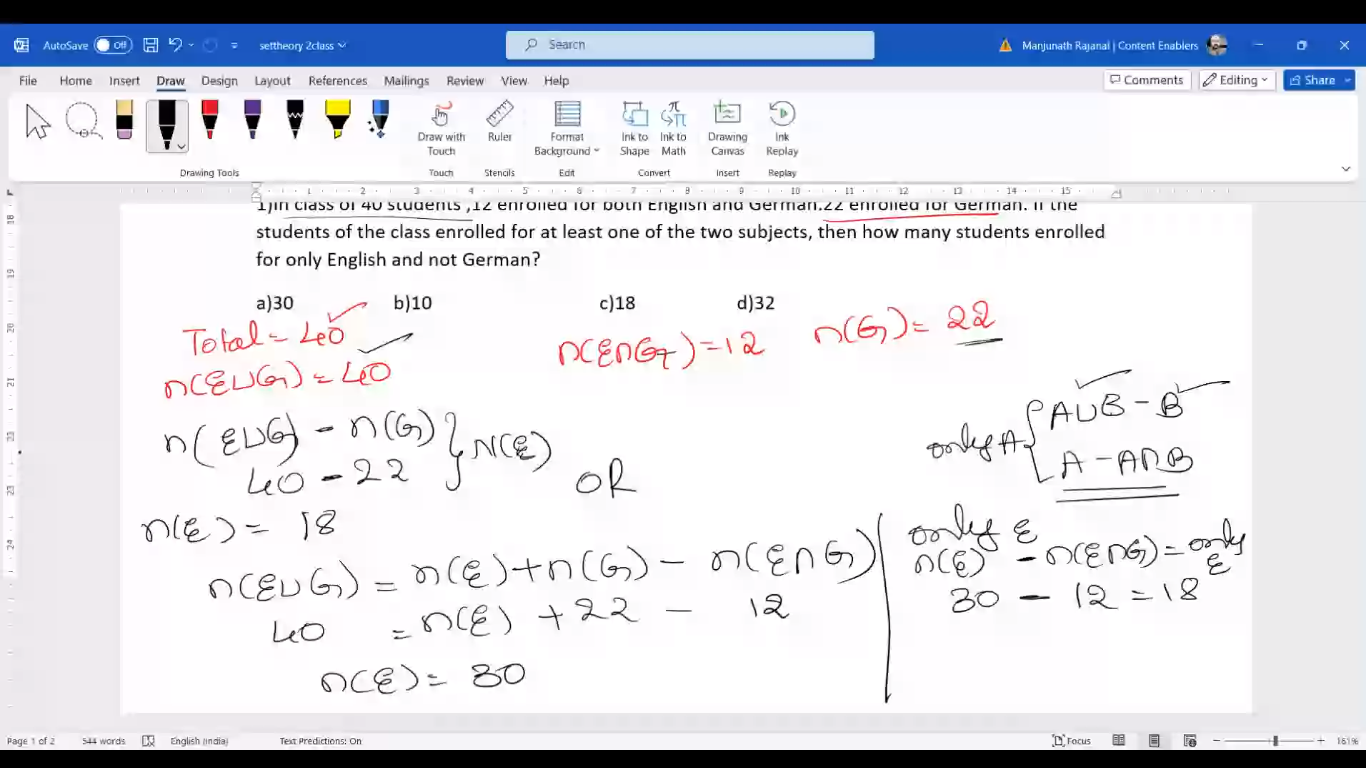 AutoSave Off settheory 2class Search Manjunath Rajanal | Content Enablers
File Home Insert Draw Design Layout References Mailings Review View Help Comments Editing Share
Draw with Touch Ruler Format Background Ink to Shape Ink to Math Drawing Canvas Ink Replay
Drawing Tools Touch Stencils Edit Convert Insert Replay
1 2 3 4 5 6 7 8 9 10 11 12 13 14 15
1)In class of 40 students ,12 enrolled for both English and German.22 enrolled for German. If the
students of the class enrolled for at least one of the two subjects, then how many students enrolled
for only English and not German?
a)30 b)10 c)18 d)32
Total = 40
n(E∩G) = 12 n(G) = 22
n(E∪G) = 40
n(E∪G) - n(G) } N(E)
40 - 22
OR
only A { A∪B - B
A - A∩B
n(E) = 18
n(E∪G) = n(E) + n(G) - n(E∩G)
40 = n(E) + 22 - 12
n(E) = 30
only E
n(E) - n(E∩G) = only E
30 - 12 = 18
18
19
20
21
22
23
24
Page 1 of 2 544 words English (India) Text Predictions: On Focus 161%